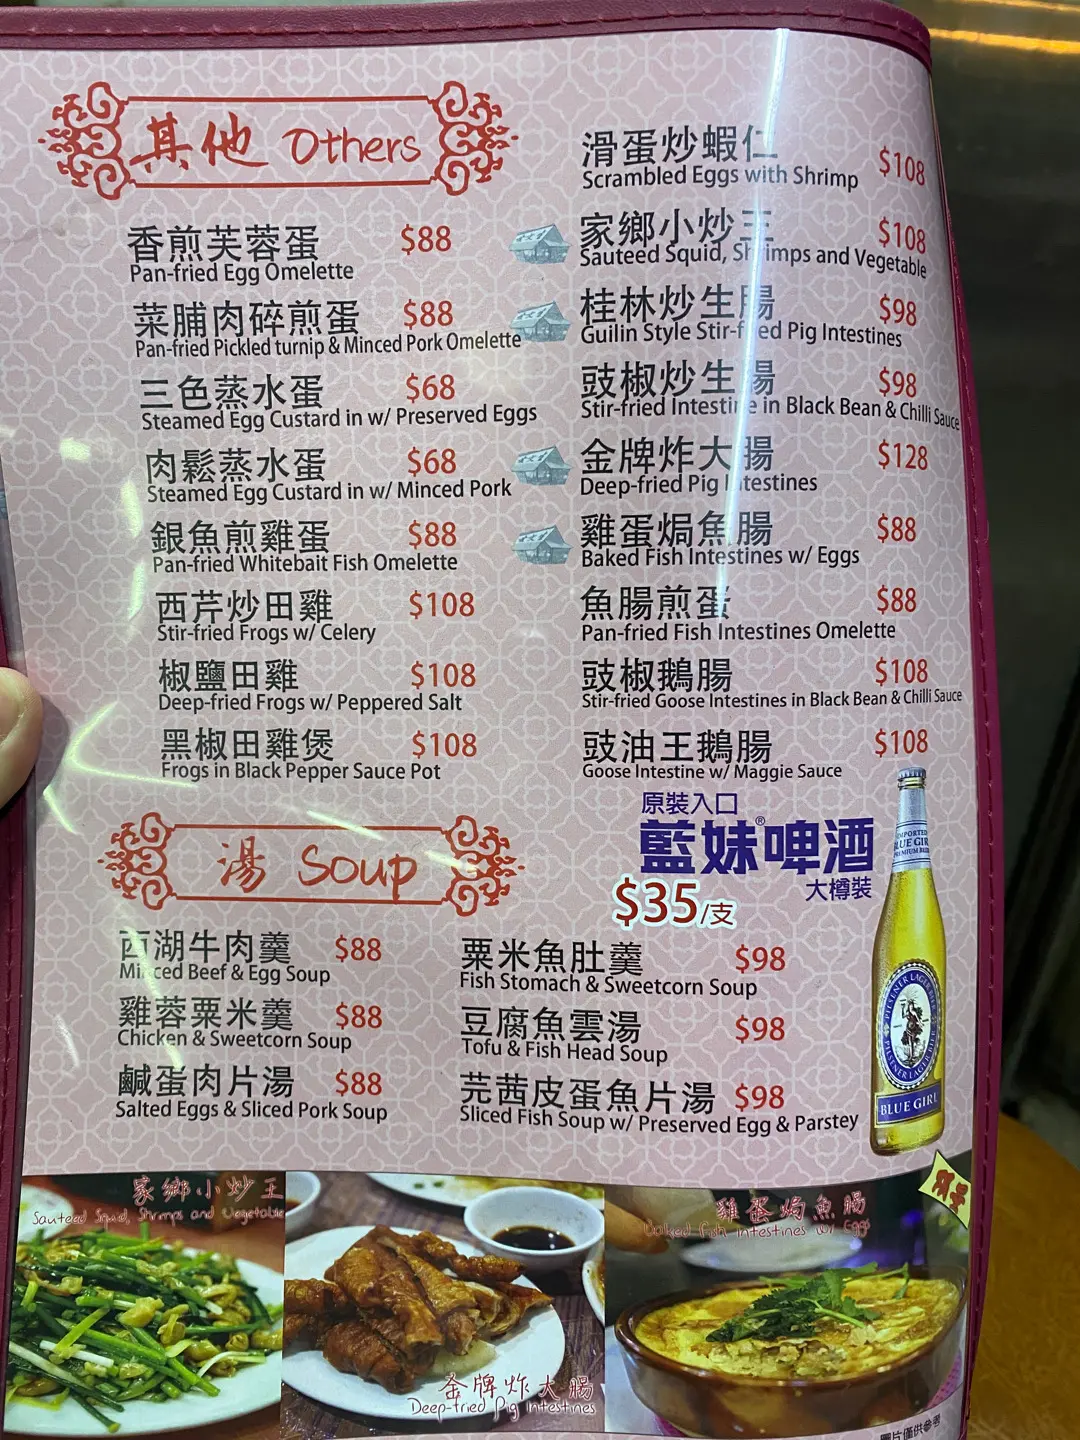 其他 Others
香煎芙蓉蛋 $88
Pan-fried Egg Omelette
菜脯肉碎煎蛋 $88
Pan-fried Pickled turnip & Minced Pork Omelette
三色蒸水蛋 $68
Steamed Egg Custard in w/ Preserved Eggs
肉鬆蒸水蛋 $68
Steamed Egg Custard in w/ Minced Pork
銀魚煎雞蛋 $88
Pan-fried Whitebait Fish Omelette
西芹炒田雞 $108
Stir-fried Frogs w/ Celery
椒鹽田雞 $108
Deep-fried Frogs w/ Peppered Salt
黑椒田雞煲 $108
Frogs in Black Pepper Sauce Pot
滑蛋炒蝦仁 $108
Scrambled Eggs with Shrimp
家鄉小炒王 $108
Sauteed Squid, Shrimps and Vegetable
桂林炒生腸 $98
Guilin Style Stir-fried Pig Intestines
豉椒炒生腸 $98
Stir-fried Intestine in Black Bean & Chilli Sauce
金牌炸大腸 $128
Deep-fried Pig Intestines
雞蛋焗魚腸 $88
Baked Fish Intestines w/ Eggs
魚腸煎蛋 $88
Pan-fried Fish Intestines Omelette
豉椒鵝腸 $108
Stir-fried Goose Intestines in Black Bean & Chilli Sauce
豉油王鵝腸 $108
Goose Intestine w/ Maggie Sauce
原裝入口
藍妹®啤酒
大樽裝
$35/支
IMPORTED
BLUE GIRL
PREMIUM BEER
PILSENER LAGER BEER
PILSENER LAGER BEER
BLUE GIRL
湯 Soup
西湖牛肉羹 $88
Minced Beef & Egg Soup
雞蓉粟米羹 $88
Chicken & Sweetcorn Soup
鹹蛋肉片湯 $88
Salted Eggs & Sliced Pork Soup
粟米魚肚羹 $98
Fish Stomach & Sweetcorn Soup
豆腐魚雲湯 $98
Tofu & Fish Head Soup
芫茜皮蛋魚片湯 $98
Sliced Fish Soup w/ Preserved Egg & Parstey
家鄉小炒王
Sauteed Squid, Shrimps and Vegetable
金牌炸大腸
Deep-fried Pig Intestines
雞蛋焗魚腸
Baked Fish Intestines w/ Eggs
圖片僅供參考